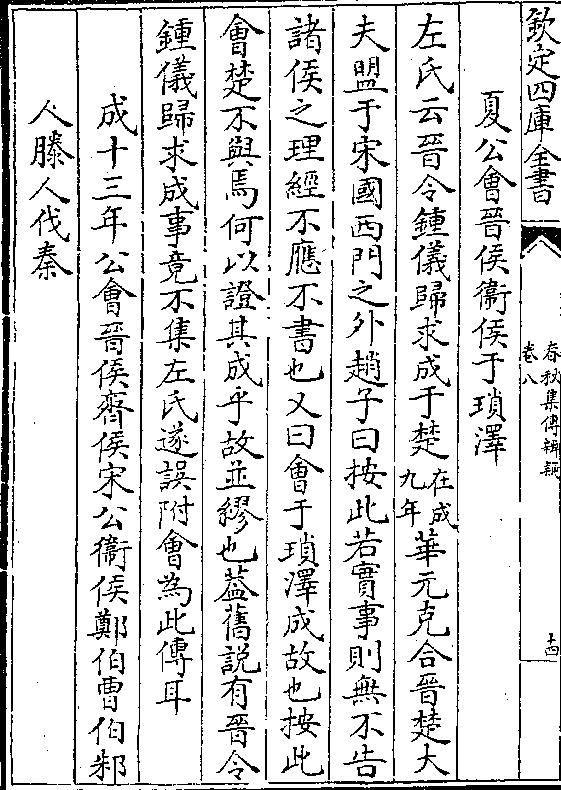 欽定四庫全書
春秋集傳辨疑
卷八
十四
夏公會晉侯衞侯于瑣澤
左氏云晉令鍾儀歸求成于楚在成九年華元克合晉楚大
夫盟于宋國西門之外趙子曰按此若實事則無不告
諸侯之理經不應不書也又曰會于瑣澤成故也按此
會楚不與焉何以證其成乎故並繆也葢舊説有晉令
鍾儀歸求成事竟不集左氏遂誤附會為此傳耳
成十三年公會晉侯齊侯宋公衞侯鄭伯曹伯邾
人滕人伐秦